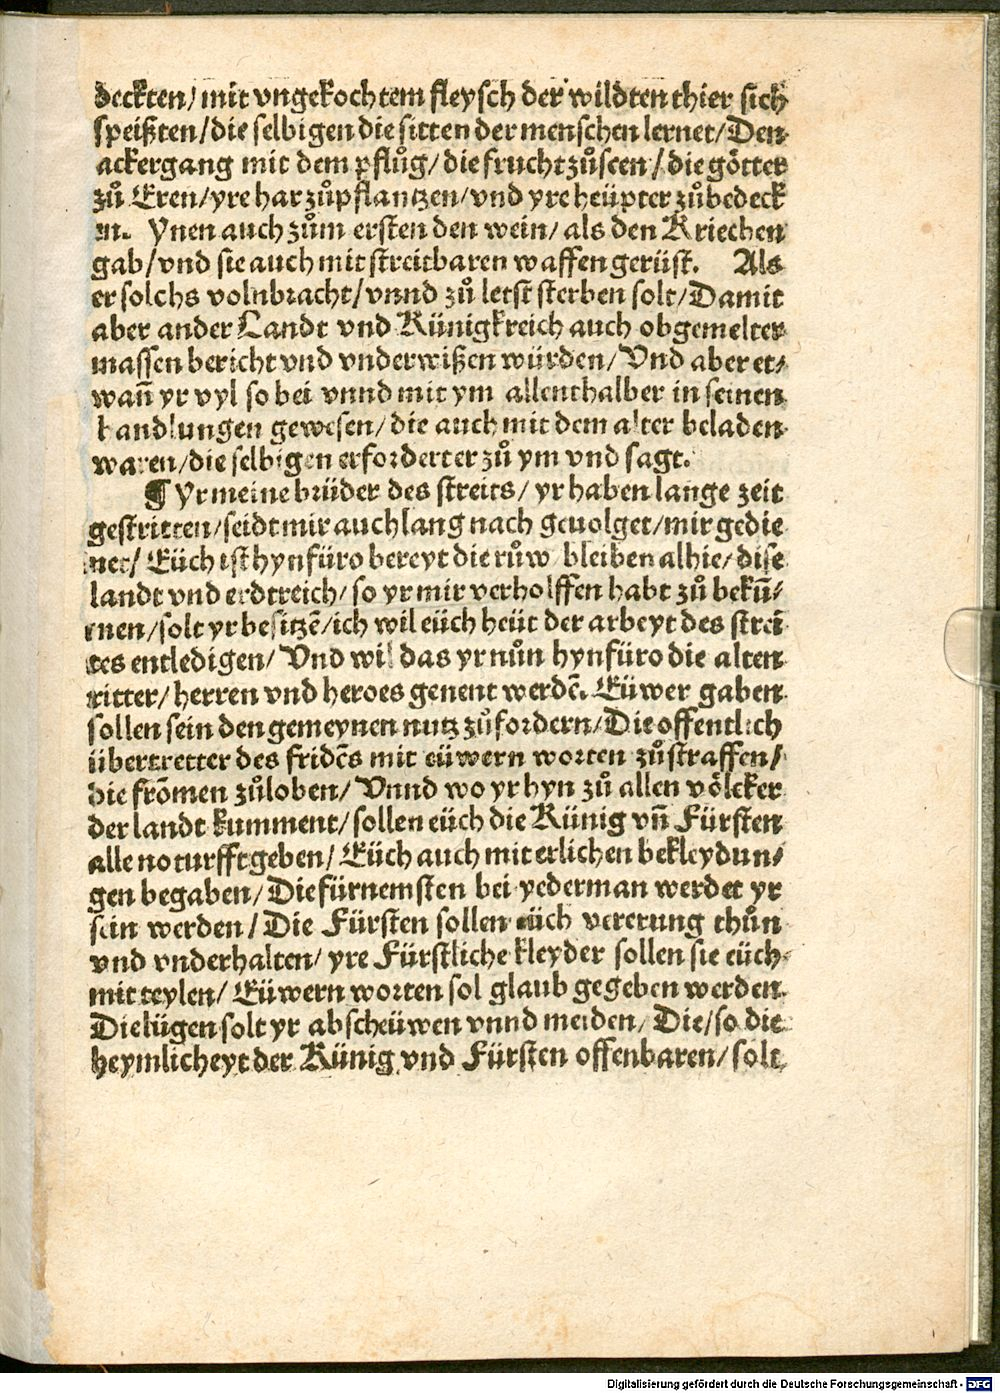 deckten/ mit vngekochtem fleysch der wildten thier sich
speißten/ die selbigen die sitten der menschen lernet/ Den
ackergang mit dem pflůg/ die frucht zůseen/ die götter
zů Eren/ yre har zůpflantzen/ vnd yre heüpter zůbedeck
en. Ynen auch zům ersten den wein/ als den Kriechen
gab/ vnd sie auch mit streitbaren waffen gerüst. Als
er solchs volnbracht/ vnnd zů letst sterben solt/ Damit
aber ander Landt vnd Künigkreich auch obgemelter
massen bericht vnd vnderwißen würden/ Vnd aber et⸗
wañ yr vyl so bei vnnd mit ym allenthalber in seinen
handlungen gewesen/ die auch mit dem alter beladen
waren/ die selbigen erforderter zů ym vnd sagt.
¶ Yr meine brüder des streits/ yr haben lange zeit
gestritten/ seidt mir auch lang nach geuolget/ mir gedie
net/ Eüch ist hynfüro bereyt die růw bleiben alhie/ dise
landt vnd erdtreich/ so yr mir verholffen habt zů bekū⸗
men/ solt yr besitzē/ ich wil eüch heüt der arbeyt des strei
tes entledigen/ Vnd wil das yr nůn hynfüro die alten
ritter/ herren vnd heroes genent werdē. Eüwer gaben
sollen sein den gemeynen nutz zůfordern/ Die offentlich
übertretter des fridēs mit eüwern worten zůstraffen/
die frōmen zůloben/ Vnnd wo yr hyn zů allen völcker
der landt kumment/ sollen eüch die Künig vñ Fürsten
alle noturfft geben/ Eüch auch mit erlichen bekleydun⸗
gen begaben/ Die fürnemsten bei yederman werdet yr
sein werden/ Die Fürsten sollen eüch vererung thůn
vnd vnderhalten/ yre Fürstliche kleyder sollen sie eüch
mit teylen/ Eüwern worten sol glaub gegeben werden.
Die lügen solt yr abscheüwen vnnd meiden/ Die/ so die
heymlicheyt der Künig vnd Fürsten offenbaren/ solt
Digitalisierung gefördert durch die Deutsche Forschungsgemeinschaft - DFG